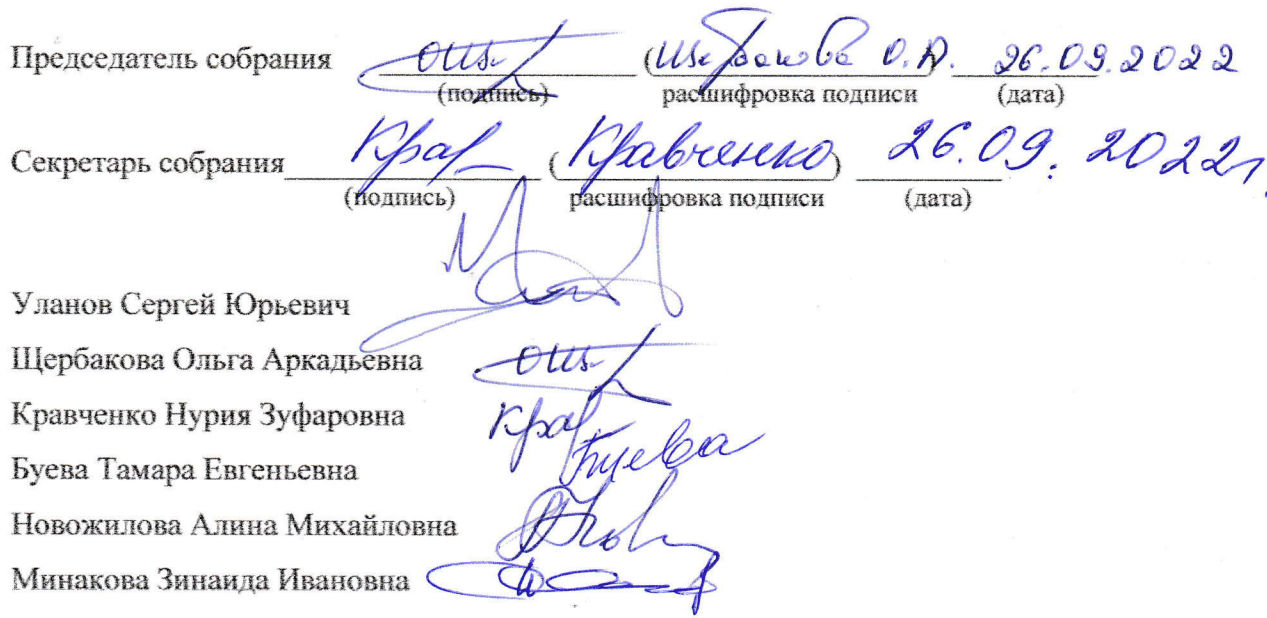 Председатель собрания (Щербакова О.А. 26.09.2022
(подпись) расшифровка подписи (дата)
Секретарь собрания Крав (Кравченко) 26.09.2022г.
(подпись) расшифровка подписи (дата)
Уланов Сергей Юрьевич
Щербакова Ольга Аркадьевна
Кравченко Нурия Зуфаровна Крав
Буева Тамара Евгеньевна Буева
Новожилова Алина Михайловна
Минакова Зинаида Ивановна